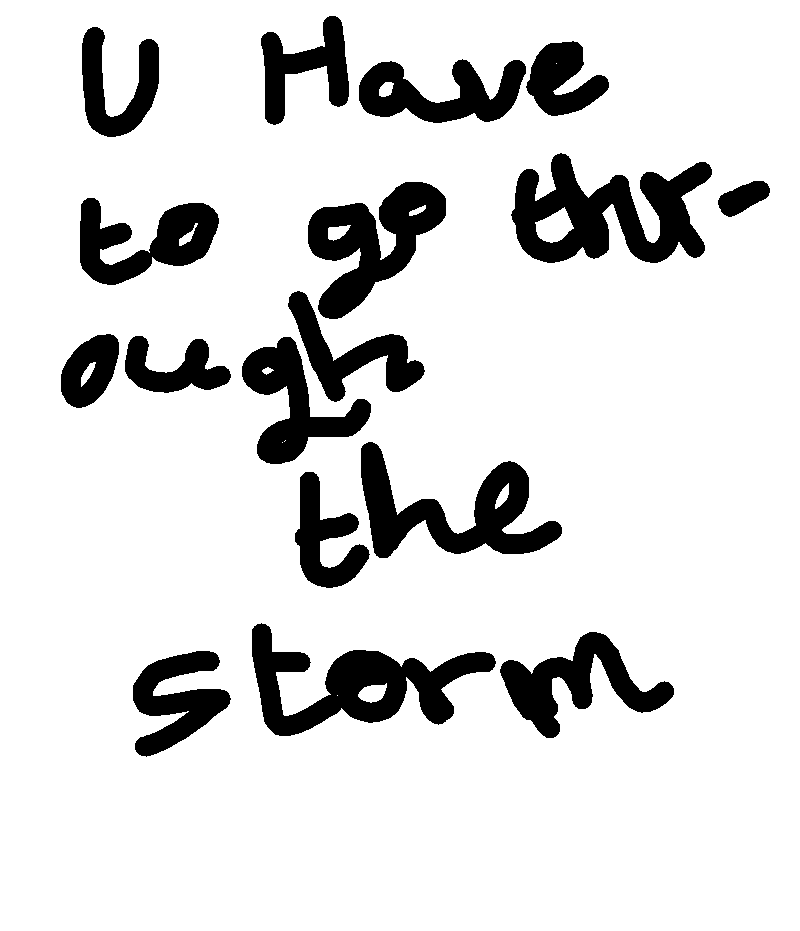 U Have
to go thr-
ough
the
storm